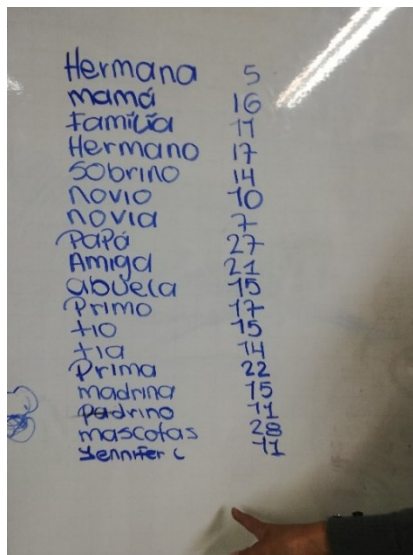 Hermana 5
mamá 16
Familia 11
Hermano 17
Sobrino 14
novio 10
novia 7
Papá 27
Amiga 21
abuela 15
Primo 17
tio 15
tia 14
Prima 22
madrina 15
padrino 11
mascotas 28
Jennifer C 11